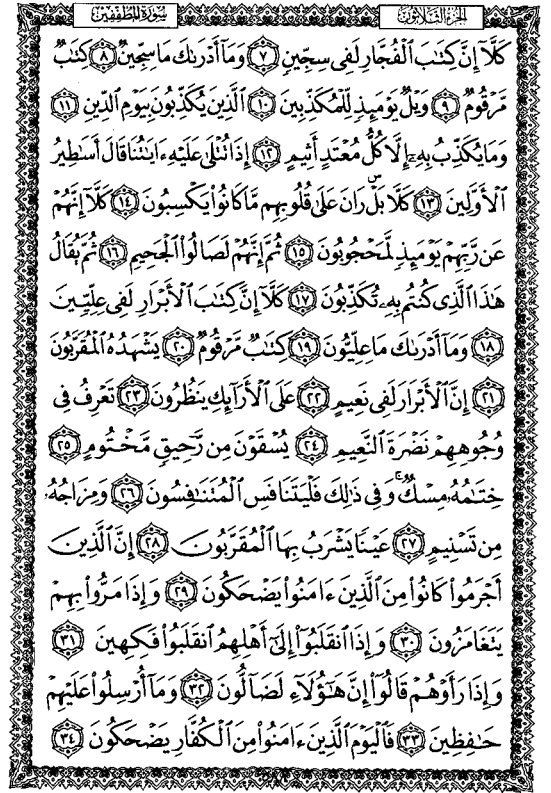 سورة المطففين
الجزء الثلاثون
كَلَّآ إِنَّ كِتَٰبَ ٱلْفُجَّارِ لَفِى سِجِّينٍ ٧ وَمَآ أَدْرَىٰكَ مَا سِجِّينٌ ٨ كِتَٰبٌ
مَّرْقُومٌ ٩ وَيْلٌ يَوْمَئِذٍ لِّلْمُكَذِّبِينَ ١٠ ٱلَّذِينَ يُكَذِّبُونَ بِيَوْمِ ٱلدِّينِ ١١
وَمَا يُكَذِّبُ بِهِۦٓ إِلَّا كُلُّ مُعْتَدٍ أَثِيمٍ ١٢ إِذَا تُتْلَىٰ عَلَيْهِ ءَايَٰتُنَا قَالَ أَسَٰطِيرُ
ٱلْأَوَّلِينَ ١٣ كَلَّا بَلْ ۜ رَانَ عَلَىٰ قُلُوبِهِم مَّا كَانُوا۟ يَكْسِبُونَ ١٤ كَلَّآ إِنَّهُمْ
عَن رَّبِّهِمْ يَوْمَئِذٍ لَّمَحْجُوبُونَ ١٥ ثُمَّ إِنَّهُمْ لَصَالُوا۟ ٱلْجَحِيمِ ١٦ ثُمَّ يُقَالُ
هَٰذَا ٱلَّذِى كُنتُم بِهِۦ تُكَذِّبُونَ ١٧ كَلَّآ إِنَّ كِتَٰبَ ٱلْأَبْرَارِ لَفِى عِلِّيِّينَ
١٨ وَمَآ أَدْرَىٰكَ مَا عِلِّيُّونَ ١٩ كِتَٰبٌ مَّرْقُومٌ ٢٠ يَشْهَدُهُ ٱلْمُقَرَّبُونَ
٢١ إِنَّ ٱلْأَبْرَارَ لَفِى نَعِيمٍ ٢٢ عَلَى ٱلْأَرَآئِكِ يَنظُرُونَ ٢٣ تَعْرِفُ فِى
وُجُوهِهِمْ نَضْرَةَ ٱلنَّعِيمِ ٢٤ يُسْقَوْنَ مِن رَّحِيقٍ مَّخْتُومٍ ٢٥
خِتَٰمُهُۥ مِسْكٌ ۚ وَفِى ذَٰلِكَ فَلْيَتَنَافَسِ ٱلْمُتَنَٰفِسُونَ ٢٦ وَمِزَاجُهُۥ
مِن تَسْنِيمٍ ٢٧ عَيْنًا يَشْرَبُ بِهَا ٱلْمُقَرَّبُونَ ٢٨ إِنَّ ٱلَّذِينَ
أَجْرَمُوا۟ كَانُوا۟ مِنَ ٱلَّذِينَ ءَامَنُوا۟ يَضْحَكُونَ ٢٩ وَإِذَا مَرُّوا۟ بِهِمْ
يَتَغَامَزُونَ ٣٠ وَإِذَا ٱنقَلَبُوٓا۟ إِلَىٰٓ أَهْلِهِمُ ٱنقَلَبُوا۟ فَكِهِينَ ٣١
وَإِذَا رَأَوْهُمْ قَالُوٓا۟ إِنَّ هَٰٓؤُلَآءِ لَضَآلُّونَ ٣٢ وَمَآ أُرْسِلُوا۟ عَلَيْهِمْ
حَٰفِظِينَ ٣٣ فَٱلْيَوْمَ ٱلَّذِينَ ءَامَنُوا۟ مِنَ ٱلْكُفَّارِ يَضْحَكُونَ ٣٤